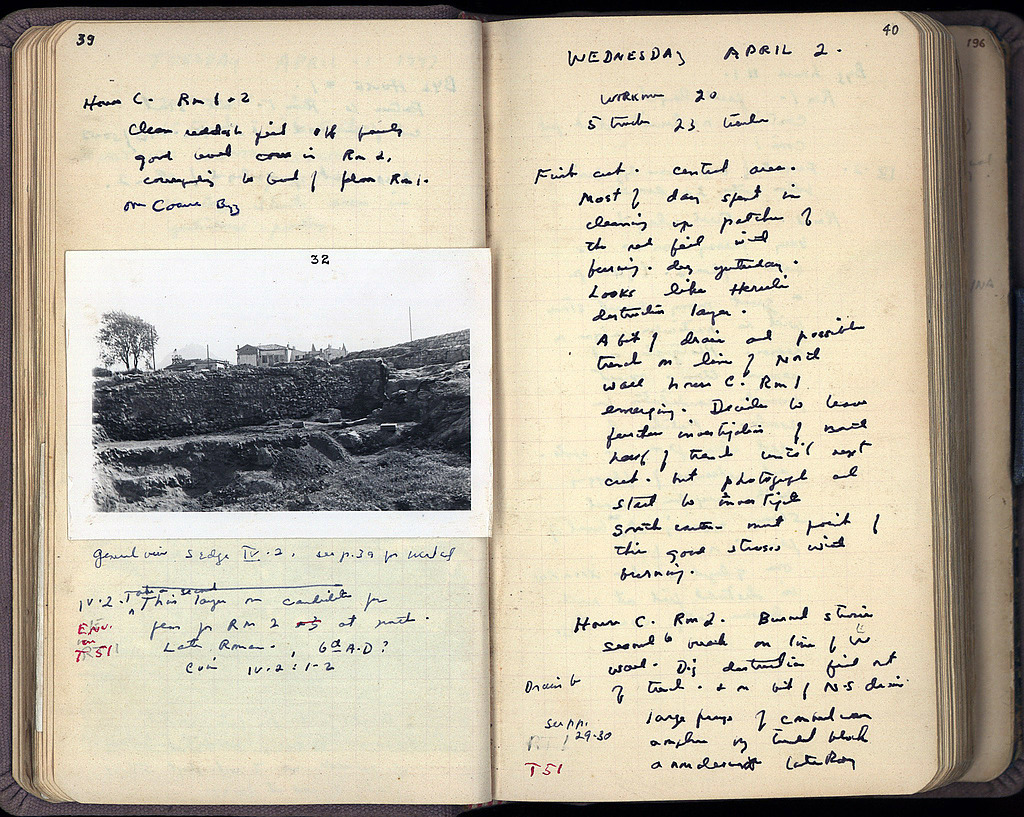 39
House C. Rm 1 + 2
Clean reddish fill off fairly
good level in Rm 2,
corresponding to level of floor Rm 1.
on Coarse Byz
32
General view S edge IV.2. see p.39 for
IV.2.
This layer on candidate for
for Rm 2 at north.
Late Roman, 6th A.D?
Coin IV.2:1-2
T51
40
WEDNESDAY APRIL 2.
WORKMEN 20
5 trucks 23 trucks
First cut. central area.
Most of day spent in
cleaning up patches of
the red fill with
burning. dug yesterday.
Looks like Herulian
destruction layer.
A bit of drain and possible
trench on line of North
wall House C. Rm 1
emerging. Decide to leave
further investigation of north
half of trench until next
cut. but photograph and
start to investigate
south most point of
this good stroses with
burning.
House C. Rm 2. Burnt
second week on line of W
wall. Dig destruction fill out
of trench. & on bit of N-S drain.
Drain b
large frags of
by tumbled block
a nondescript Late Rom
see pp.
29-30
T51
196